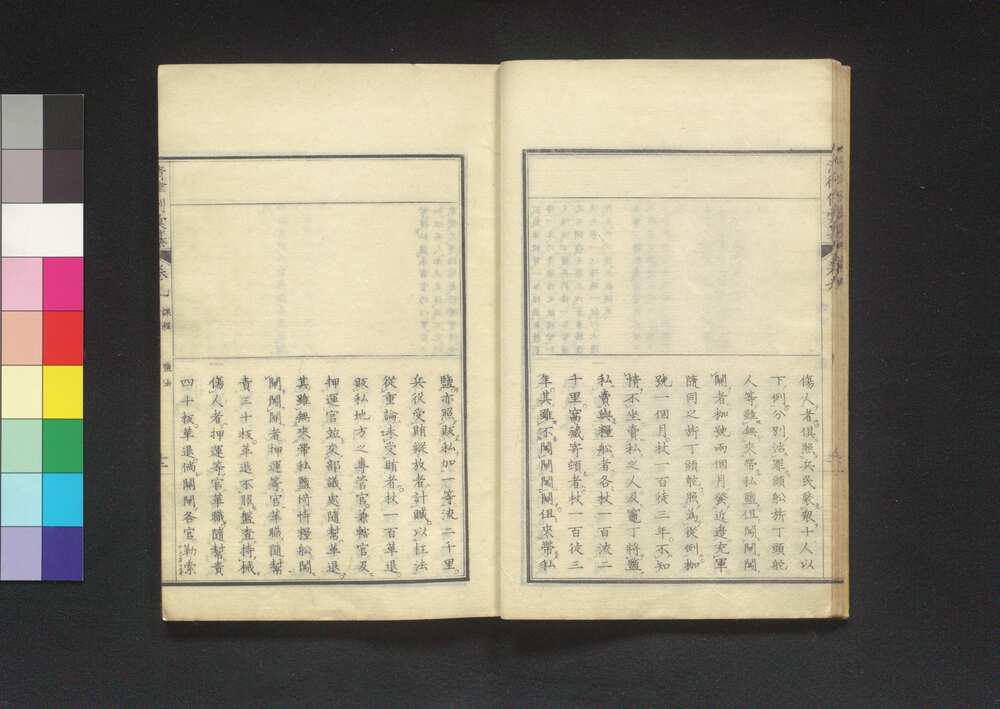 傷人者俱照兵民聚衆十人以
下例分別治罪頭船旂丁頭舵
人等雖無夾帶私鹽但闖閘闖
關者枷號兩個月發近邊充軍
隨同之旂丁頭舵照為從例枷
號一個月杖一百徒三年不知
情不坐賣私之人及竈丁將鹽
私賣與糧船者各杖一百流二
千里窩藏寄頓者杖一百徒三
年其雖不闖閘闖關但夾帶私
鹽亦照販私加一等流二千里
兵役受賄縱放者計贓以枉法
從重論未受賄者杖一百革退
販私地方之專管官兼轄官及
押運官竝交部議處隨幫革退
其雖無夾帶私鹽倚恃糧船闖
關闖閘者押運等官革職隨幫
責三十板革退不服盤查持械
傷人者押運等官革職隨幫責
四十板革退倘關閘各官勒索
卷七
課程
鹽法